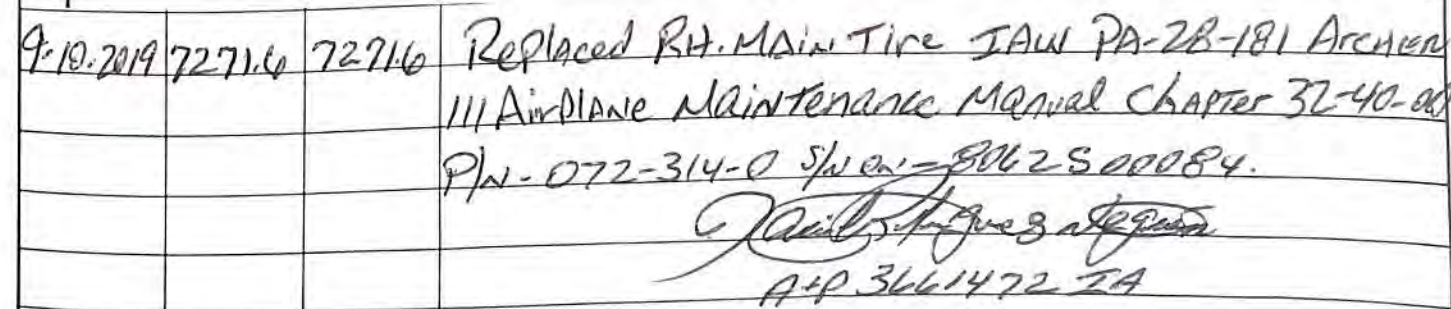 9.10.2019 7271.6 7271.6 Replaced RH. Main Tire IAW PA-28-181 Archer
III Airplane Maintenance Manual Chapter 32-40-00
P/N - 072-314-0 S/N on: - 8062S00084.
A+P 3661472 IA